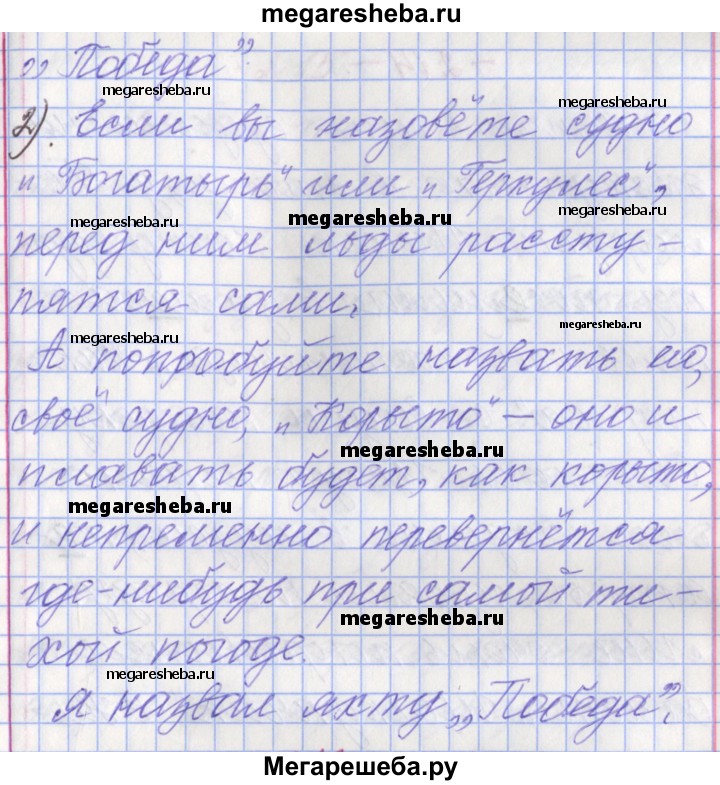 megaresheba.ru
„Победа”.
megaresheba.ru
megaresheba.ru
2). Если вы назовёте судно
„Богатырь" или „Геркулес",
megaresheba.ru
megaresheba.ru
megaresheba.ru
перед ним льды рассту-
пятся сами.
megaresheba.ru
megaresheba.ru
А попробуйте назвать его,
своё судно, „Корыто" – оно и
megaresheba.ru
плавать будет, как корыто,
megaresheba.ru
и непременно перевернётся
где-нибудь при самой ти-
megaresheba.ru
хой погоде.
megaresheba.ru
Я назвал яхту „Победа”.
Мегарешеба.ру